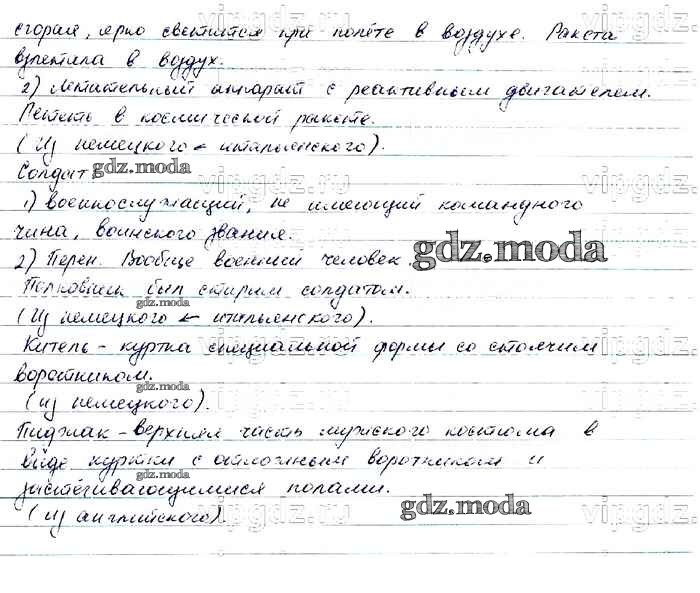 сгорая, ярко светится при полёте в воздухе. Ракета
взлетила в воздух.
2) Летительный аппарат с реактивным двигателем.
Лететь в космической ракете.
(из немецкого ← итальянского).
Солдат
gdz.moda
1) военнослужащий, не имеющий командного
чина, воинского звания.
2) Перен. Вообще военный человек.
gdz.moda
Полковник был старым солдатом.
gdz.moda
(Из немецкого ← итальянского).
Китель - куртка специальной формы со стоячим
воротником.
gdz.moda
(из немецкого).
Пиджак - верхняя часть мужского костюма в
виде куртки с отложным воротником и
gdz.moda
застёгивающимися полами.
gdz.moda
(из английского)
vipgdz.ru